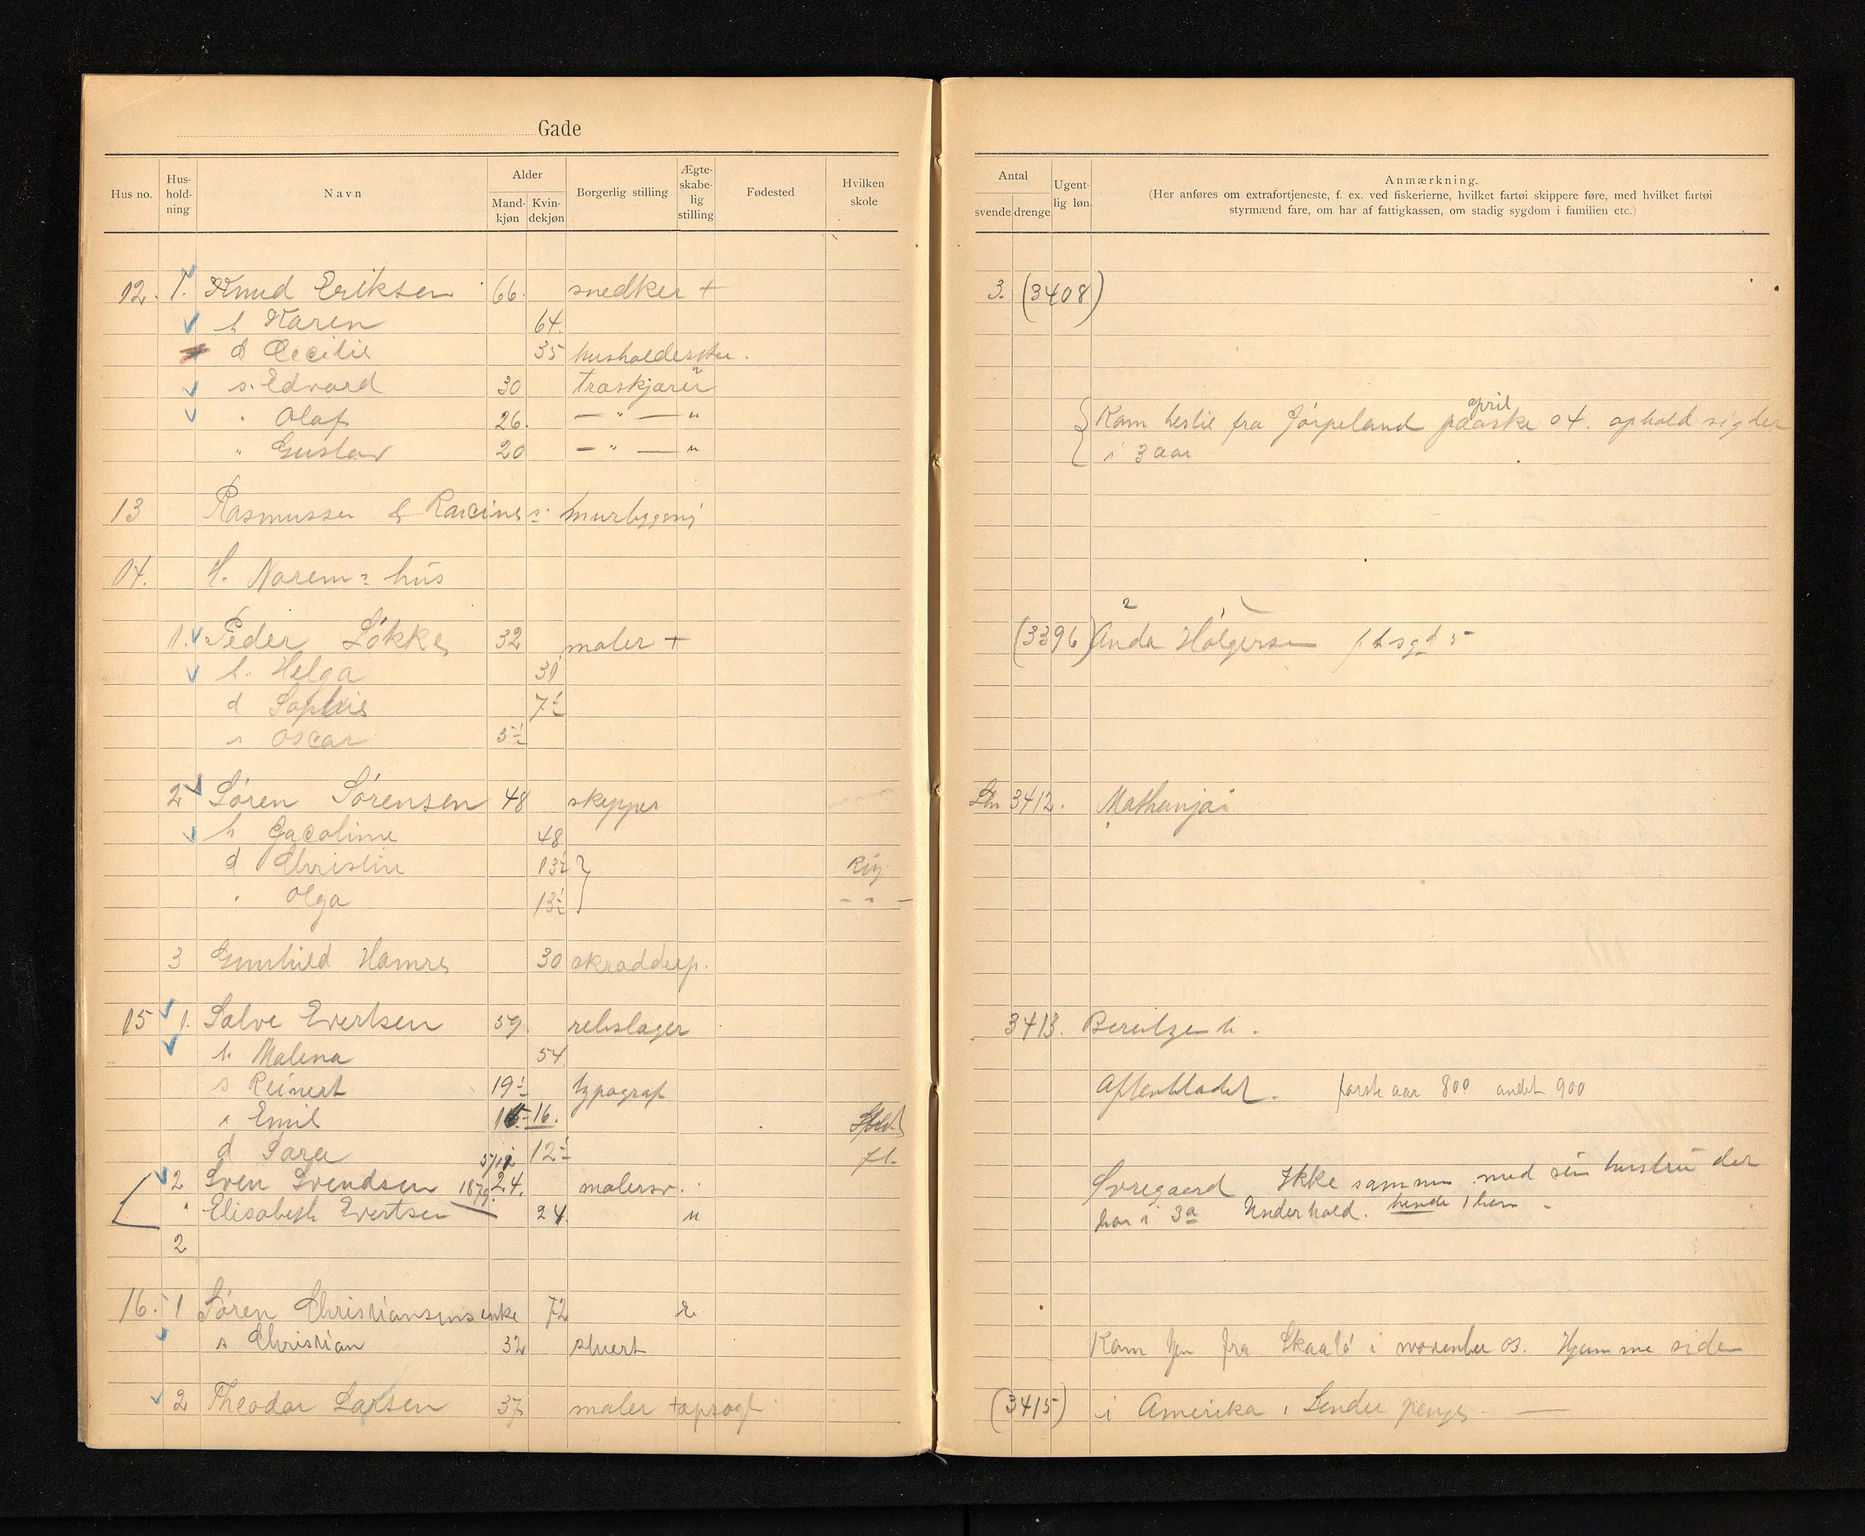 Gade
Hus no. Hus-hold-ning Navn Alder Mand-kjøn Kvin-dekjøn Borgerlig stilling Ægte-skabe-lig stilling Fødested Hvilken skole
Antal svende drenge Ugent-lig løn Anmærkning.
(Her anføres om extrafortjeneste, f. ex. ved fiskerierne, hvilket fartøi skippere føre, med hvilket fartøi
styrmænd fare, om har af fattigkassen, om stadig sygdom i familien etc.)
12. 1. Knud Eriksen 66. snedker + 3. (3408)
h Karen 64.
d Cecilie 35 husholderske.
s. Edvard 30 træskjærer
" Olaf 26. — " — " Kom hertil fra Jørpeland paaske april 04. ophold sig der
" Gustav 20 — " — " i 3 aar
13 Rasmussen & Racines murbyggeri
14. H. Narem's hus
1. Peder Løkke 32 maler + (3396) Anda Holgersen
h. Helga 31
d Sophie 7½
s Oscar 5½
2 Søren Sørensen 48 skipper 3412.
h Jacoline 48
d Christin 13½
" Olga 13½
3 Gunhild Hamre 30
15 1. Salve Evertsen 59. rebslager 3413.
h. Malena 54
s Reinert 19½ typograf Aftenbladet. første aar 800 andet 900
s Emil 16.
d Sara 12½
2 Sven Svendsen 1879. 24. malersv. Ikke sammen med sin hustru der
" Elisabeth Evertsen 24 har i 3a Underhold. hende 1 barn
2
16. 1 Søren Christiansens enke 72 e.
s Christian 32 stuert Kom hjem fra i november 03. Hjemme siden
2 Theodor Larsen 37 maler (3415) i Amerika, Sender penge. —